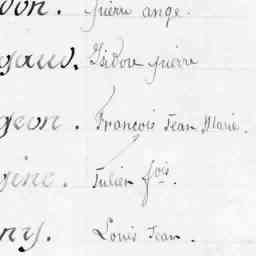 von. Pierre ange.
gaud. Isidore Pierre
geon. François Jean Marie.
gine. Julien fois.
ny. Louis Jean.